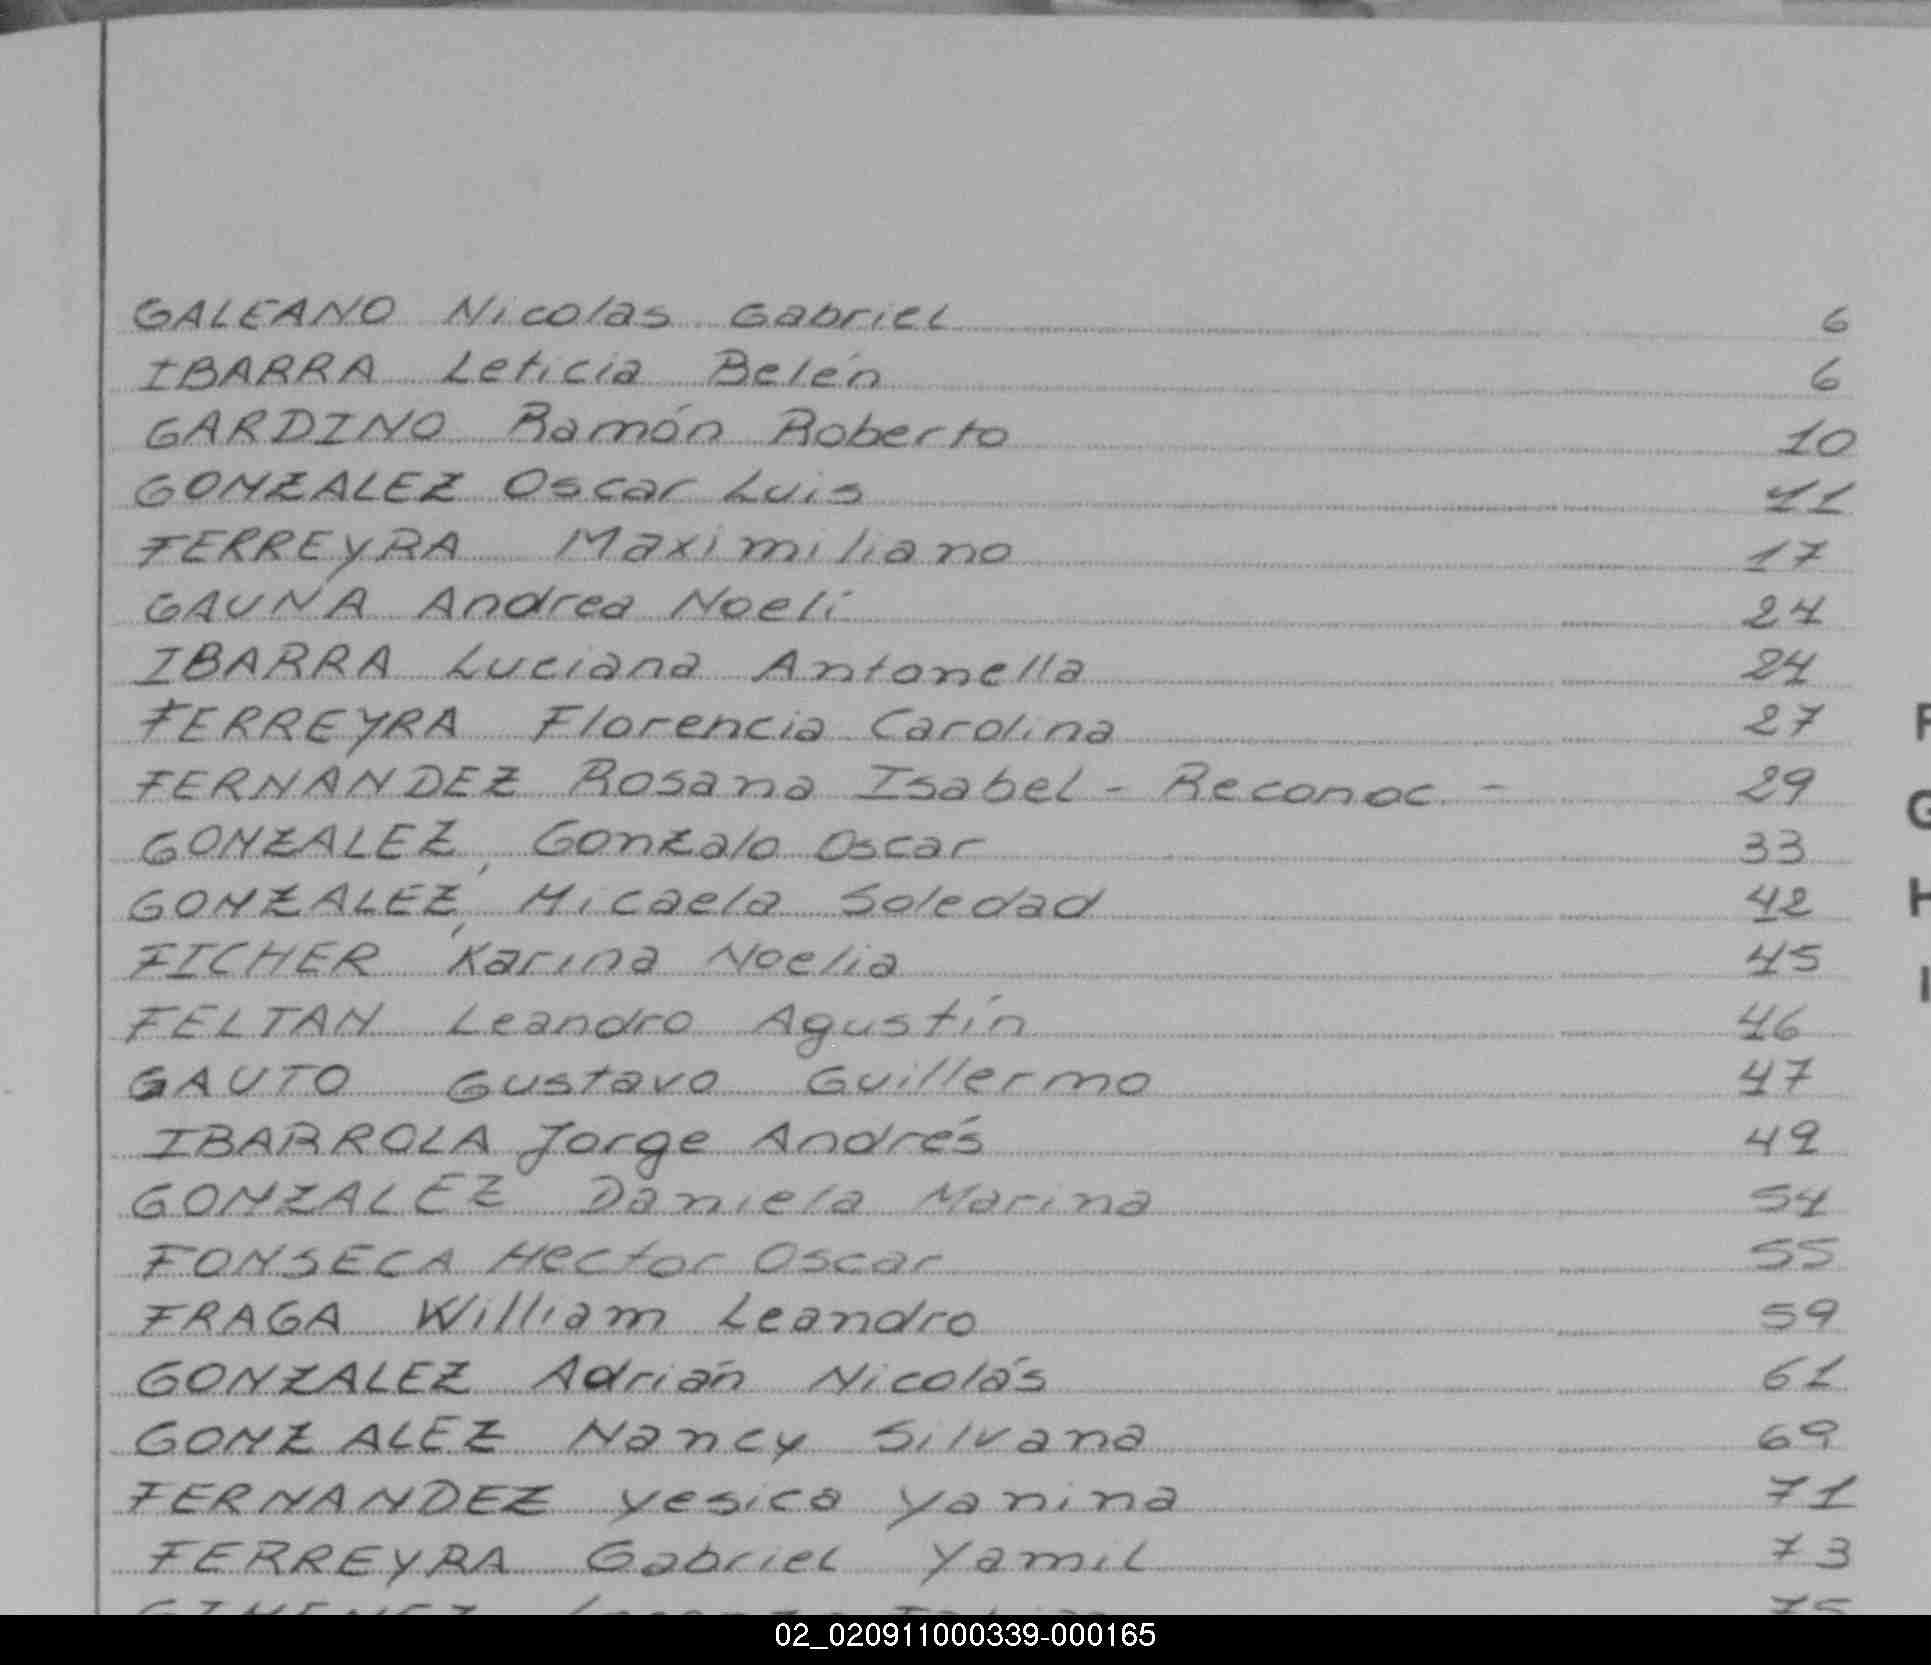 GALEANO Nicolas Gabriel 6
IBARRA Leticia Belén 6
GARDINO Ramón Roberto 10
GONZALEZ Oscar Luis 11
FERREYRA Maximiliano 17
GAUNA Andrea Noelí 24
IBARRA Luciana Antonella 24
FERREYRA Florencia Carolina 27
FERNANDEZ Rosana Isabel - Reconoc - 29
GONZALEZ, Gonzalo Oscar 33
GONZALEZ, Micaela Soledad 42
FICHER Karina Noelia 45
FELTAN Leandro Agustín 46
GAUTO Gustavo Guillermo 47
IBARROLA Jorge Andrés 49
GONZALEZ Daniela Marina 54
FONSECA Hector Oscar 55
FRAGA William Leandro 59
GONZALEZ Adrián Nicolás 61
GONZALEZ Nancy Silvana 69
FERNANDEZ Yesica Yanina 71
FERREYRA Gabriel Yamil 73
GIMENEZ 75
F
G
H
I
02_020911000339-000165